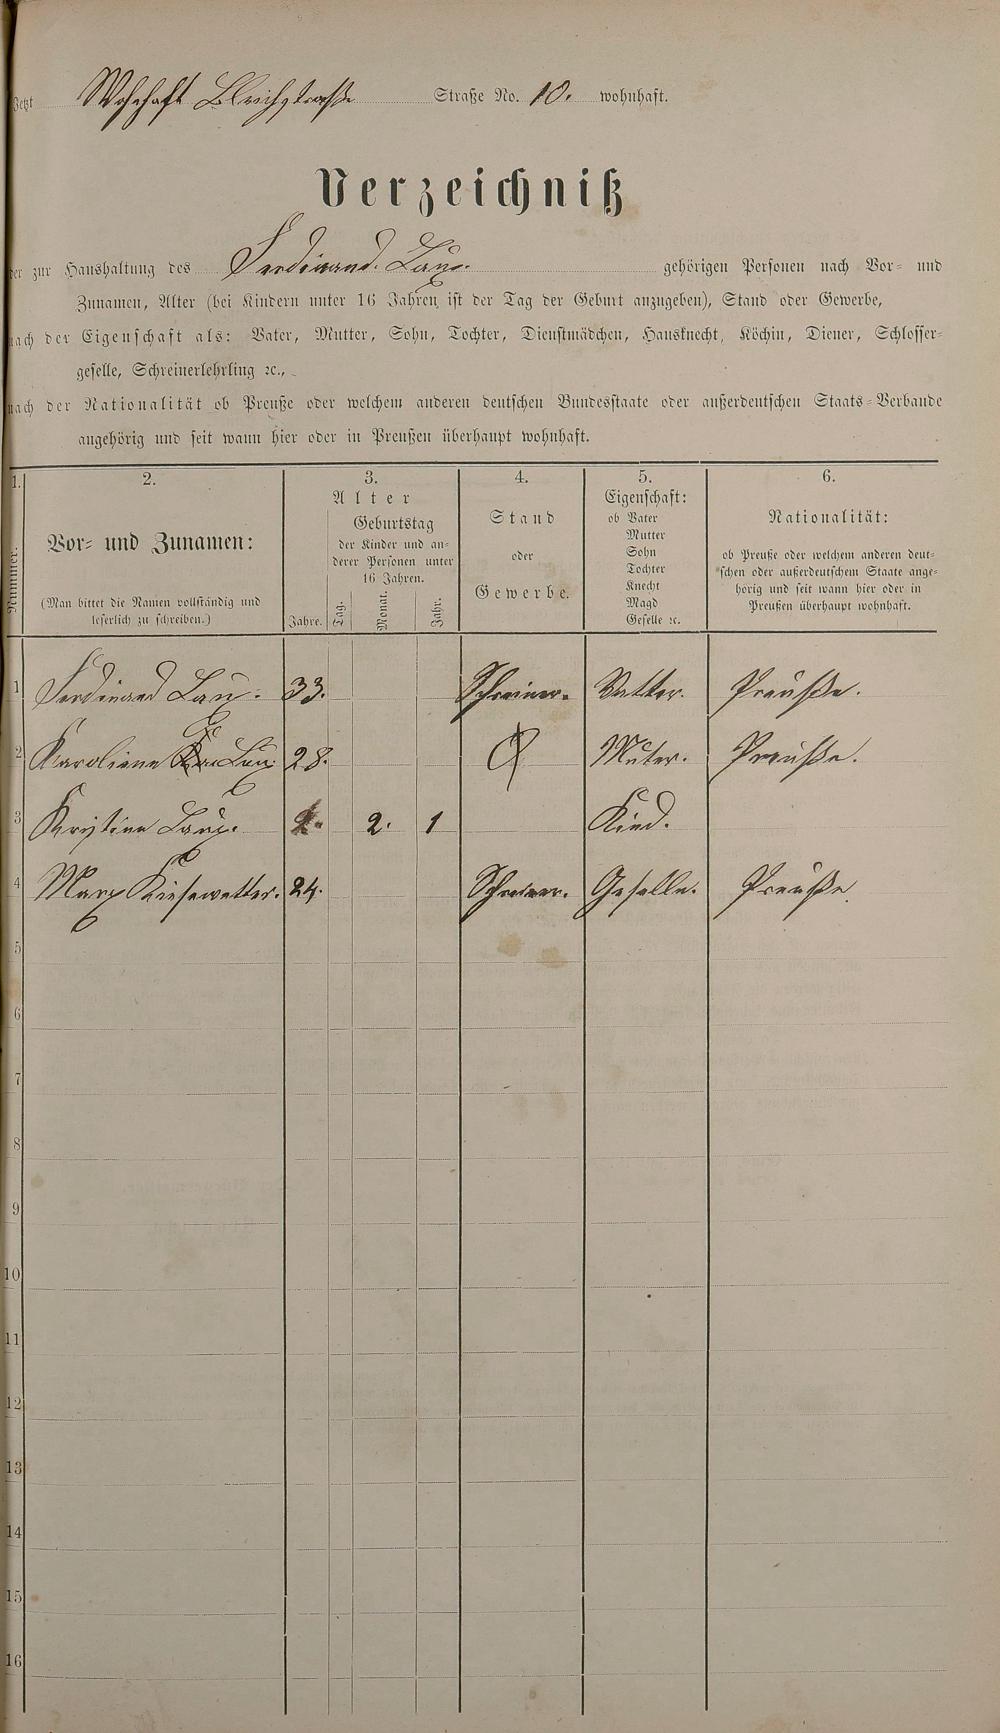 Jetzt Wohnhaft Bleichstraße Straße No. 10. wohnhaft.
Verzeichniß
der zur Haushaltung des Ferdinand. Laux. gehörigen Personen nach Vor- und
Zunamen, Alter (bei Kindern unter 16 Jahren ist der Tag der Geburt anzugeben), Stand oder Gewerbe,
nach der Eigenschaft als: Vater, Mutter, Sohn, Tochter, Dienstmädchen, Hausknecht, Köchin, Diener, Schlosser-
geselle, Schreinerlehrling ꝛc.,
nach der Nationalität ob Preuße oder welchem anderen deutschen Bundesstaate oder außerdeutschen Staats-Verbande
angehörig und seit wann hier oder in Preußen überhaupt wohnhaft.
1.
Nummer.
2.
Vor- und Zunamen:
(Man bittet die Namen vollständig und
leserlich zu schreiben.)
3.
Alter
Geburtstag
der Kinder und an-
derer Personen unter
16 Jahren.
Jahre. Tag. Monat. Jahr.
4.
Stand
oder
Gewerbe.
5.
Eigenschaft:
ob Vater
Mutter
Sohn
Tochter
Knecht
Magd
Geselle ꝛc.
6.
Nationalität:
ob Preuße oder welchem anderen deut-
schen oder außerdeutschem Staate ange-
hörig und seit wann hier oder in
Preußen überhaupt wohnhaft.
1 Ferdinand Laux. 33. Schreiner. Vatter. Preuße.
2 Karoliene Laux. 28. Muter. Preuße.
3 Kristine Laux. 2. 1 Kind.
4 Marx Kiesewetter. 24. Schreiner. Geselle. Preuße.
5
6
7
8
9
10
11
12
13
14
15
16